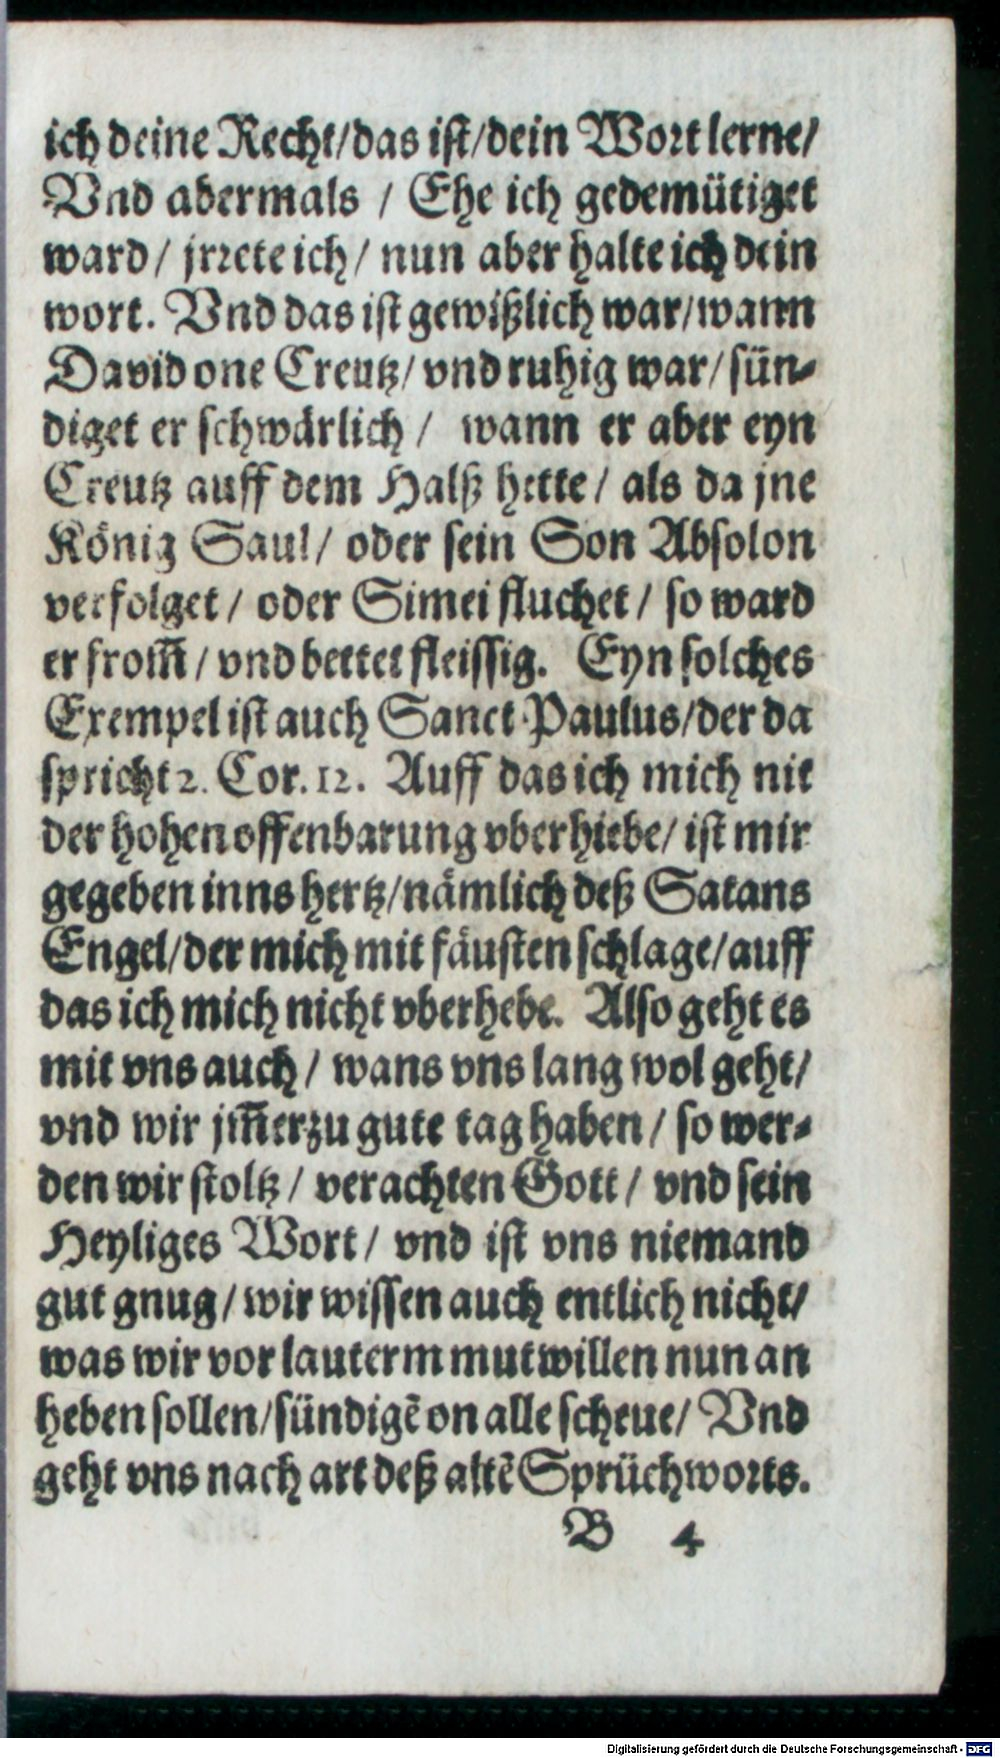 ich deine Recht/das ist/dein Wort lerne/
Vnd abermals / Ehe ich gedemütiget
ward/ jrrete ich/ nun aber halte ich dein
wort. Vnd das ist gewißlich war/wann
David one Creutz/ vnd ruhig war/ sün-
diget er schwärlich / wann er aber eyn
Creutz auff dem Halß hette/ als da jne
König Saul/ oder sein Son Absolon
verfolget/ oder Simei fluchet/ so ward
er from̃/ vnd bettet fleissig. Eyn solches
Exempel ist auch Sanct Paulus/der da
spricht 2. Cor. 12. Auff das ich mich nit
der hohen offenbarung vberhiebe/ ist mir
gegeben inns hertz/nämlich deß Satans
Engel/der mich mit fäusten schlage/auff
das ich mich nicht vberhebe. Also geht es
mit vns auch/ wans vns lang wol geht/
vnd wir jm̃erzu gute tag haben/ so wer-
den wir stoltz/ verachten Gott/ vnd sein
Heyliges Wort/ vnd ist vns niemand
gut gnug/ wir wissen auch entlich nicht/
was wir vor lauterm mutwillen nun an
heben sollen/sündigẽ on alle scheue/ Vnd
geht vns nach art deß altẽ Sprüchworts.
B 4
Digitalisierung gefördert durch die Deutsche Forschungsgemeinschaft - DFG